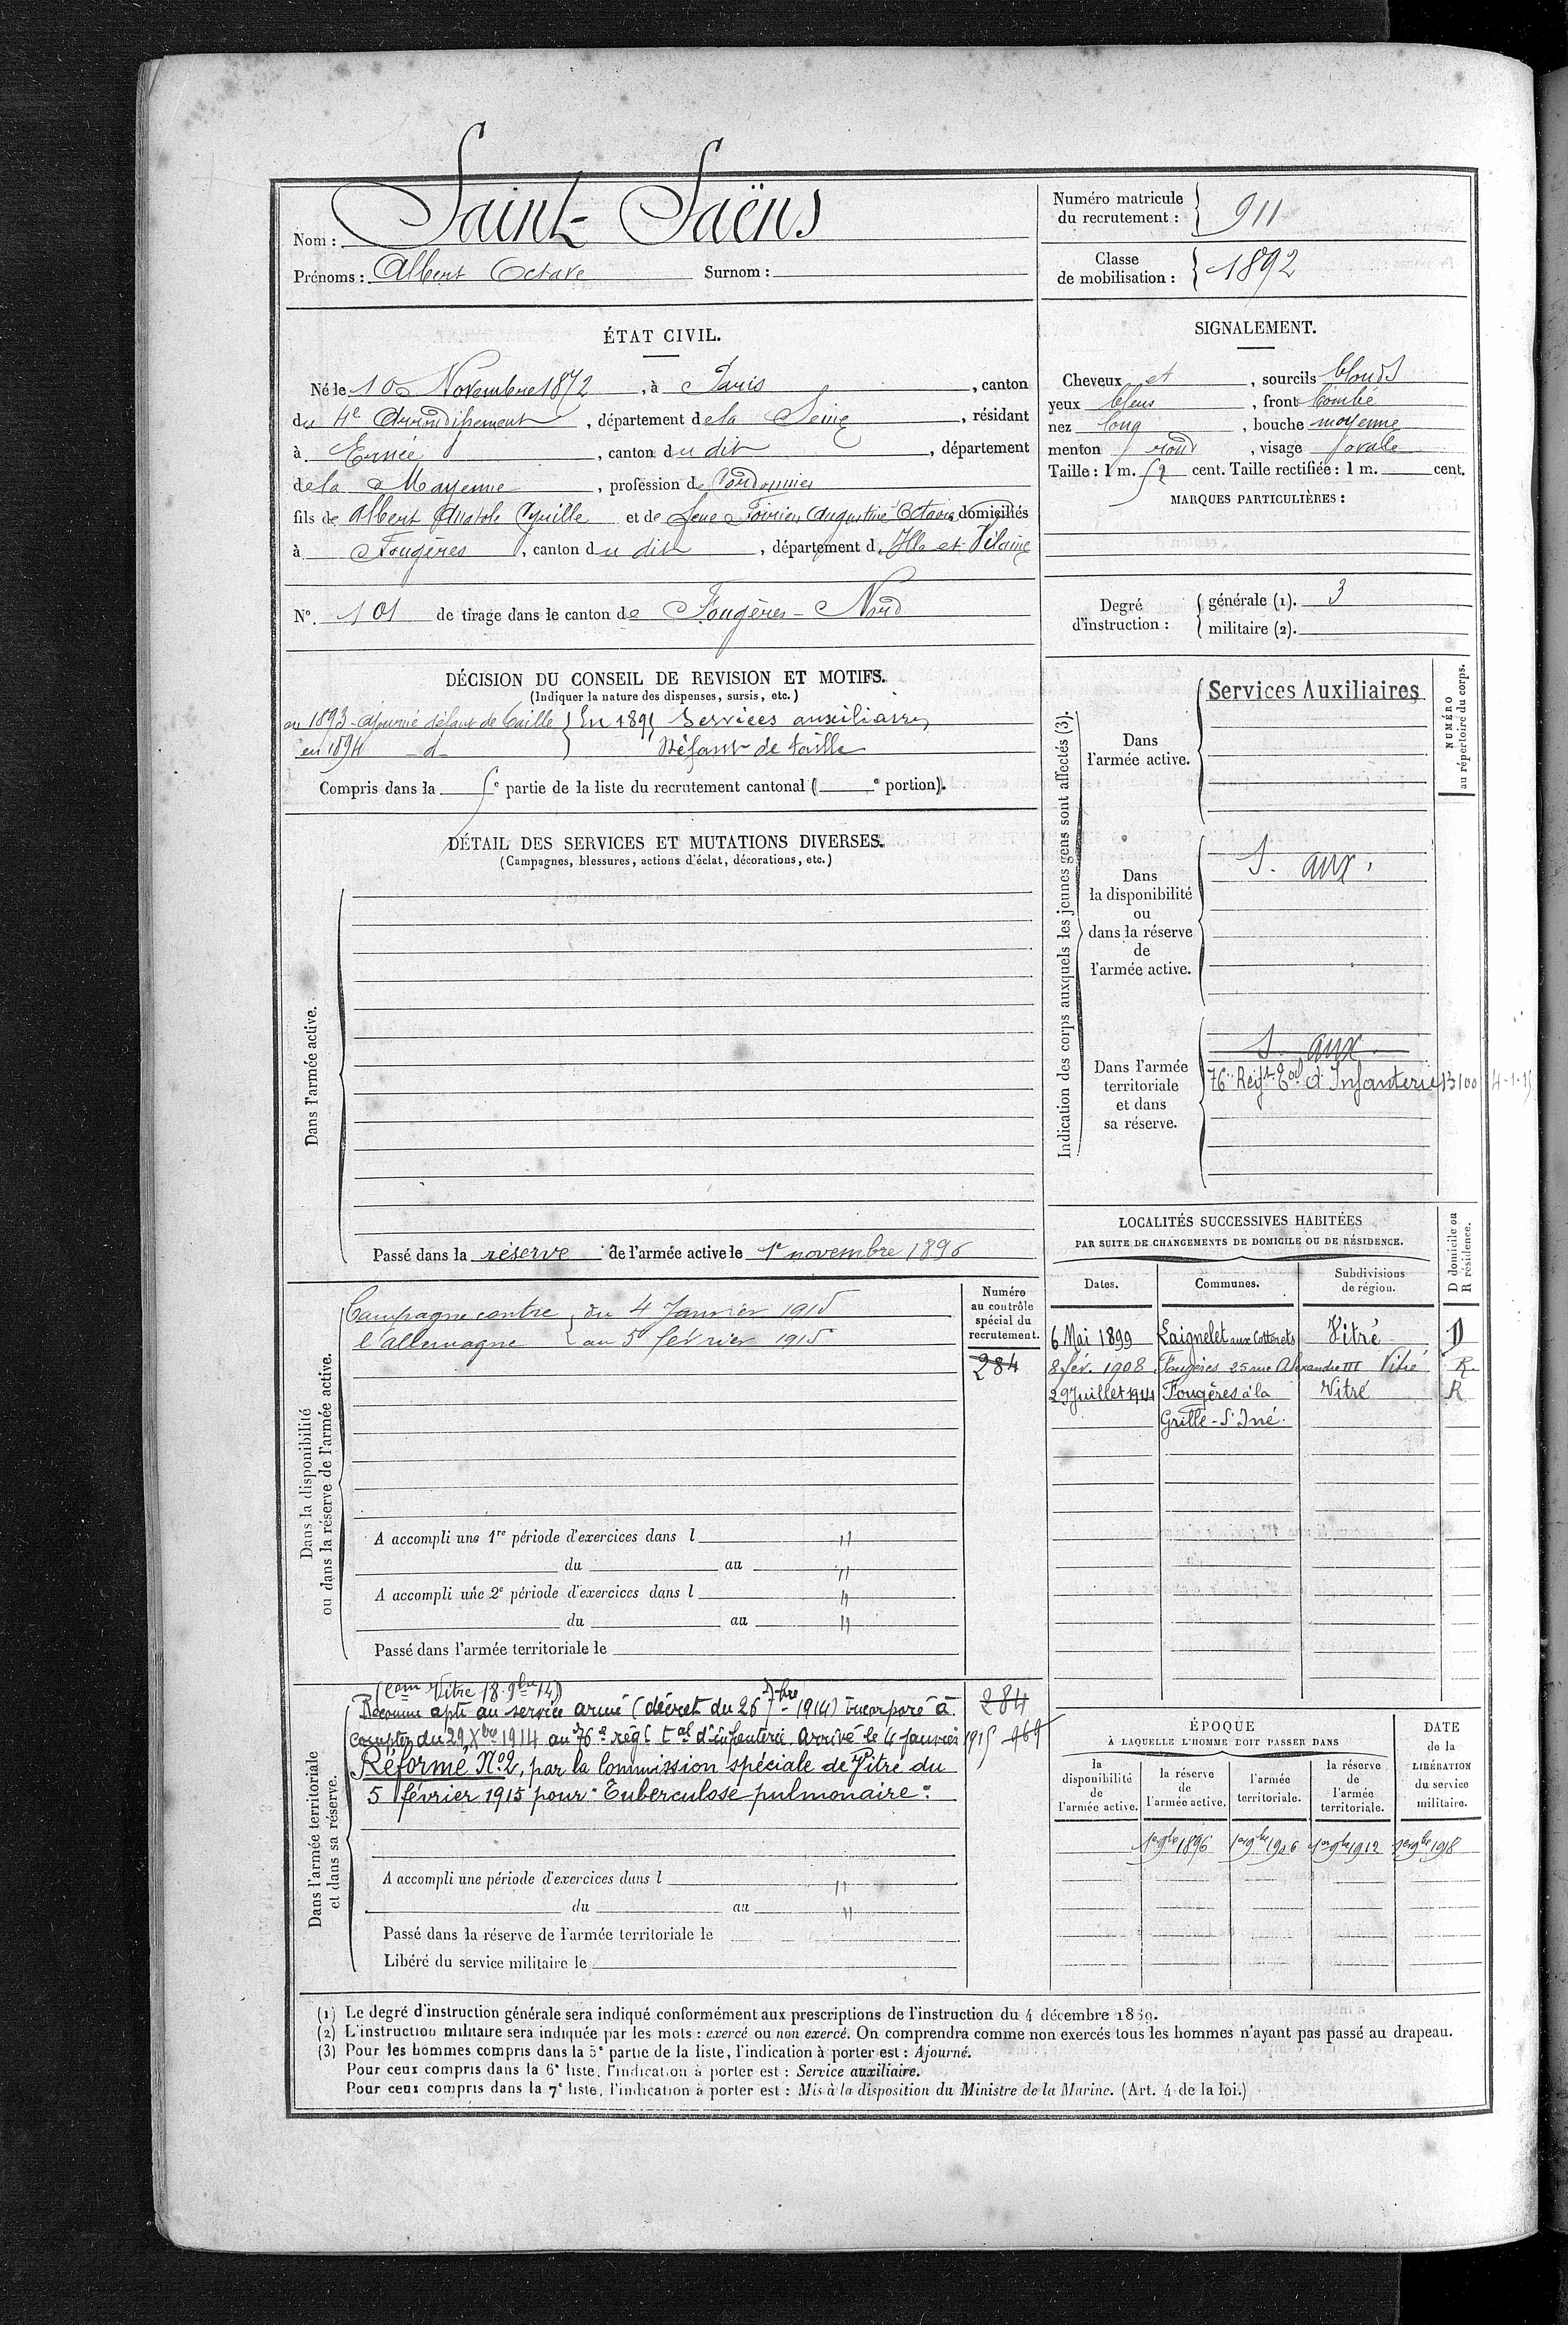 Nom : Saint-Saëns
Prénoms : Albert Octave Surnom :
Numéro matricule
du recrutement : 911
Classe
de mobilisation : 1892
ÉTAT CIVIL.
Né le 10 Novembre 1872, à Paris, canton
du 4e Arrondissement, département de la Seine, résidant
à Ernée, canton du dit, département
de la Mayenne, profession de Cordonnier
fils de Albert Anatole Cyrille et de feue Poirier, Augustine Octavie domiciliés
à Fougères, canton du dit, département d Ille et Vilaine
N°. 101 de tirage dans le canton de Fougères-Nord
SIGNALEMENT.
Cheveux et, sourcils blonds
yeux bleus, front bombé
nez long, bouche moyenne
menton rond, visage ovale
Taille : 1 m. 52 cent. Taille rectifiée : 1 m. cent.
MARQUES PARTICULIÈRES :
Degré
d'instruction :
générale (1). 3
militaire (2).
DÉCISION DU CONSEIL DE REVISION ET MOTIFS.
(Indiquer la nature des dispenses, sursis, etc.)
en 1893 - ajourné défaut de taille } En 1895 Services auxiliaires
en 1894 d° } Défaut de taille
Compris dans la 5e partie de la liste du recrutement cantonal ( e portion).
DÉTAIL DES SERVICES ET MUTATIONS DIVERSES.
(Campagnes, blessures, actions d'éclat, décorations, etc.)
Dans l'armée active.
Passé dans la réserve de l'armée active le 1er novembre 1896
Indication des corps auxquels les jeunes gens sont affectés (3).
NUMÉRO
au répertoire du corps.
Dans
l'armée active.
Services Auxiliaires
Dans
la disponibilité
ou
dans la réserve
de
l'armée active.
S. aux.
Dans l'armée
territoriale
et dans
sa réserve.
S. aux.
76e Regt Tal d'Infanterie 13100 4-1-15
Dans la disponibilité
ou dans la réserve de l'armée active.
Campagne contre { du 4 Janvier 1915
l'Allemagne { au 5 février 1915
Numéro
au contrôle
spécial du
recrutement.
284
A accompli une 1re période d'exercices dans l "
du au "
A accompli une 2e période d'exercices dans l "
du au "
Passé dans l'armée territoriale le
LOCALITÉS SUCCESSIVES HABITÉES
PAR SUITE DE CHANGEMENTS DE DOMICILE OU DE RÉSIDENCE.
D domicile ou
R résidence.
Dates. Communes. Subdivisions
de région.
6 Mai 1899 Laignelet aux Cotterets Vitré D
8 fév. 1908 Fougères 25 rue Alexandre III Vitré R.
29 Juillet 1914 Fougères à la Vitré R
Grille - St Iné.
Dans l'armée territoriale
et dans sa réserve.
(Com Vitré 18 9bre 14)
Reconnu apte au service armé (décret du 26 7bre 1914) incorporé à 284
compter du 29 Xbre 1914 au 76e régt tal d'infanterie. Arrivé le 4 janvier 1915 969
Réformé No 2, par la Commission spéciale de Vitré du
5 février 1915 pour "Tuberculose pulmonaire".
A accompli une période d'exercices dans l "
du au "
Passé dans la réserve de l'armée territoriale le
Libéré du service militaire le
ÉPOQUE
À LAQUELLE L'HOMME DOIT PASSER DANS
la
disponibilité
de
l'armée active.
la réserve
de
l'armée active.
l'armée
territoriale.
la réserve
de
l'armée
territoriale.
DATE
de la
LIBÉRATION
du service
militaire.
1er 9bre 1896 1er 9bre 1906 1er 9bre 1912 1er 9bre 1918
(1) Le degré d'instruction générale sera indiqué conformément aux prescriptions de l'instruction du 4 décembre 1889.
(2) L'instruction militaire sera indiquée par les mots : exercé ou non exercé. On comprendra comme non exercés tous les hommes n'ayant pas passé au drapeau.
(3) Pour les hommes compris dans la 5e partie de la liste, l'indication à porter est : Ajourné.
Pour ceux compris dans la 6e liste, l'indication à porter est : Service auxiliaire.
Pour ceux compris dans la 7e liste, l'indication à porter est : Mis à la disposition du Ministre de la Marine. (Art. 4 de la loi.)